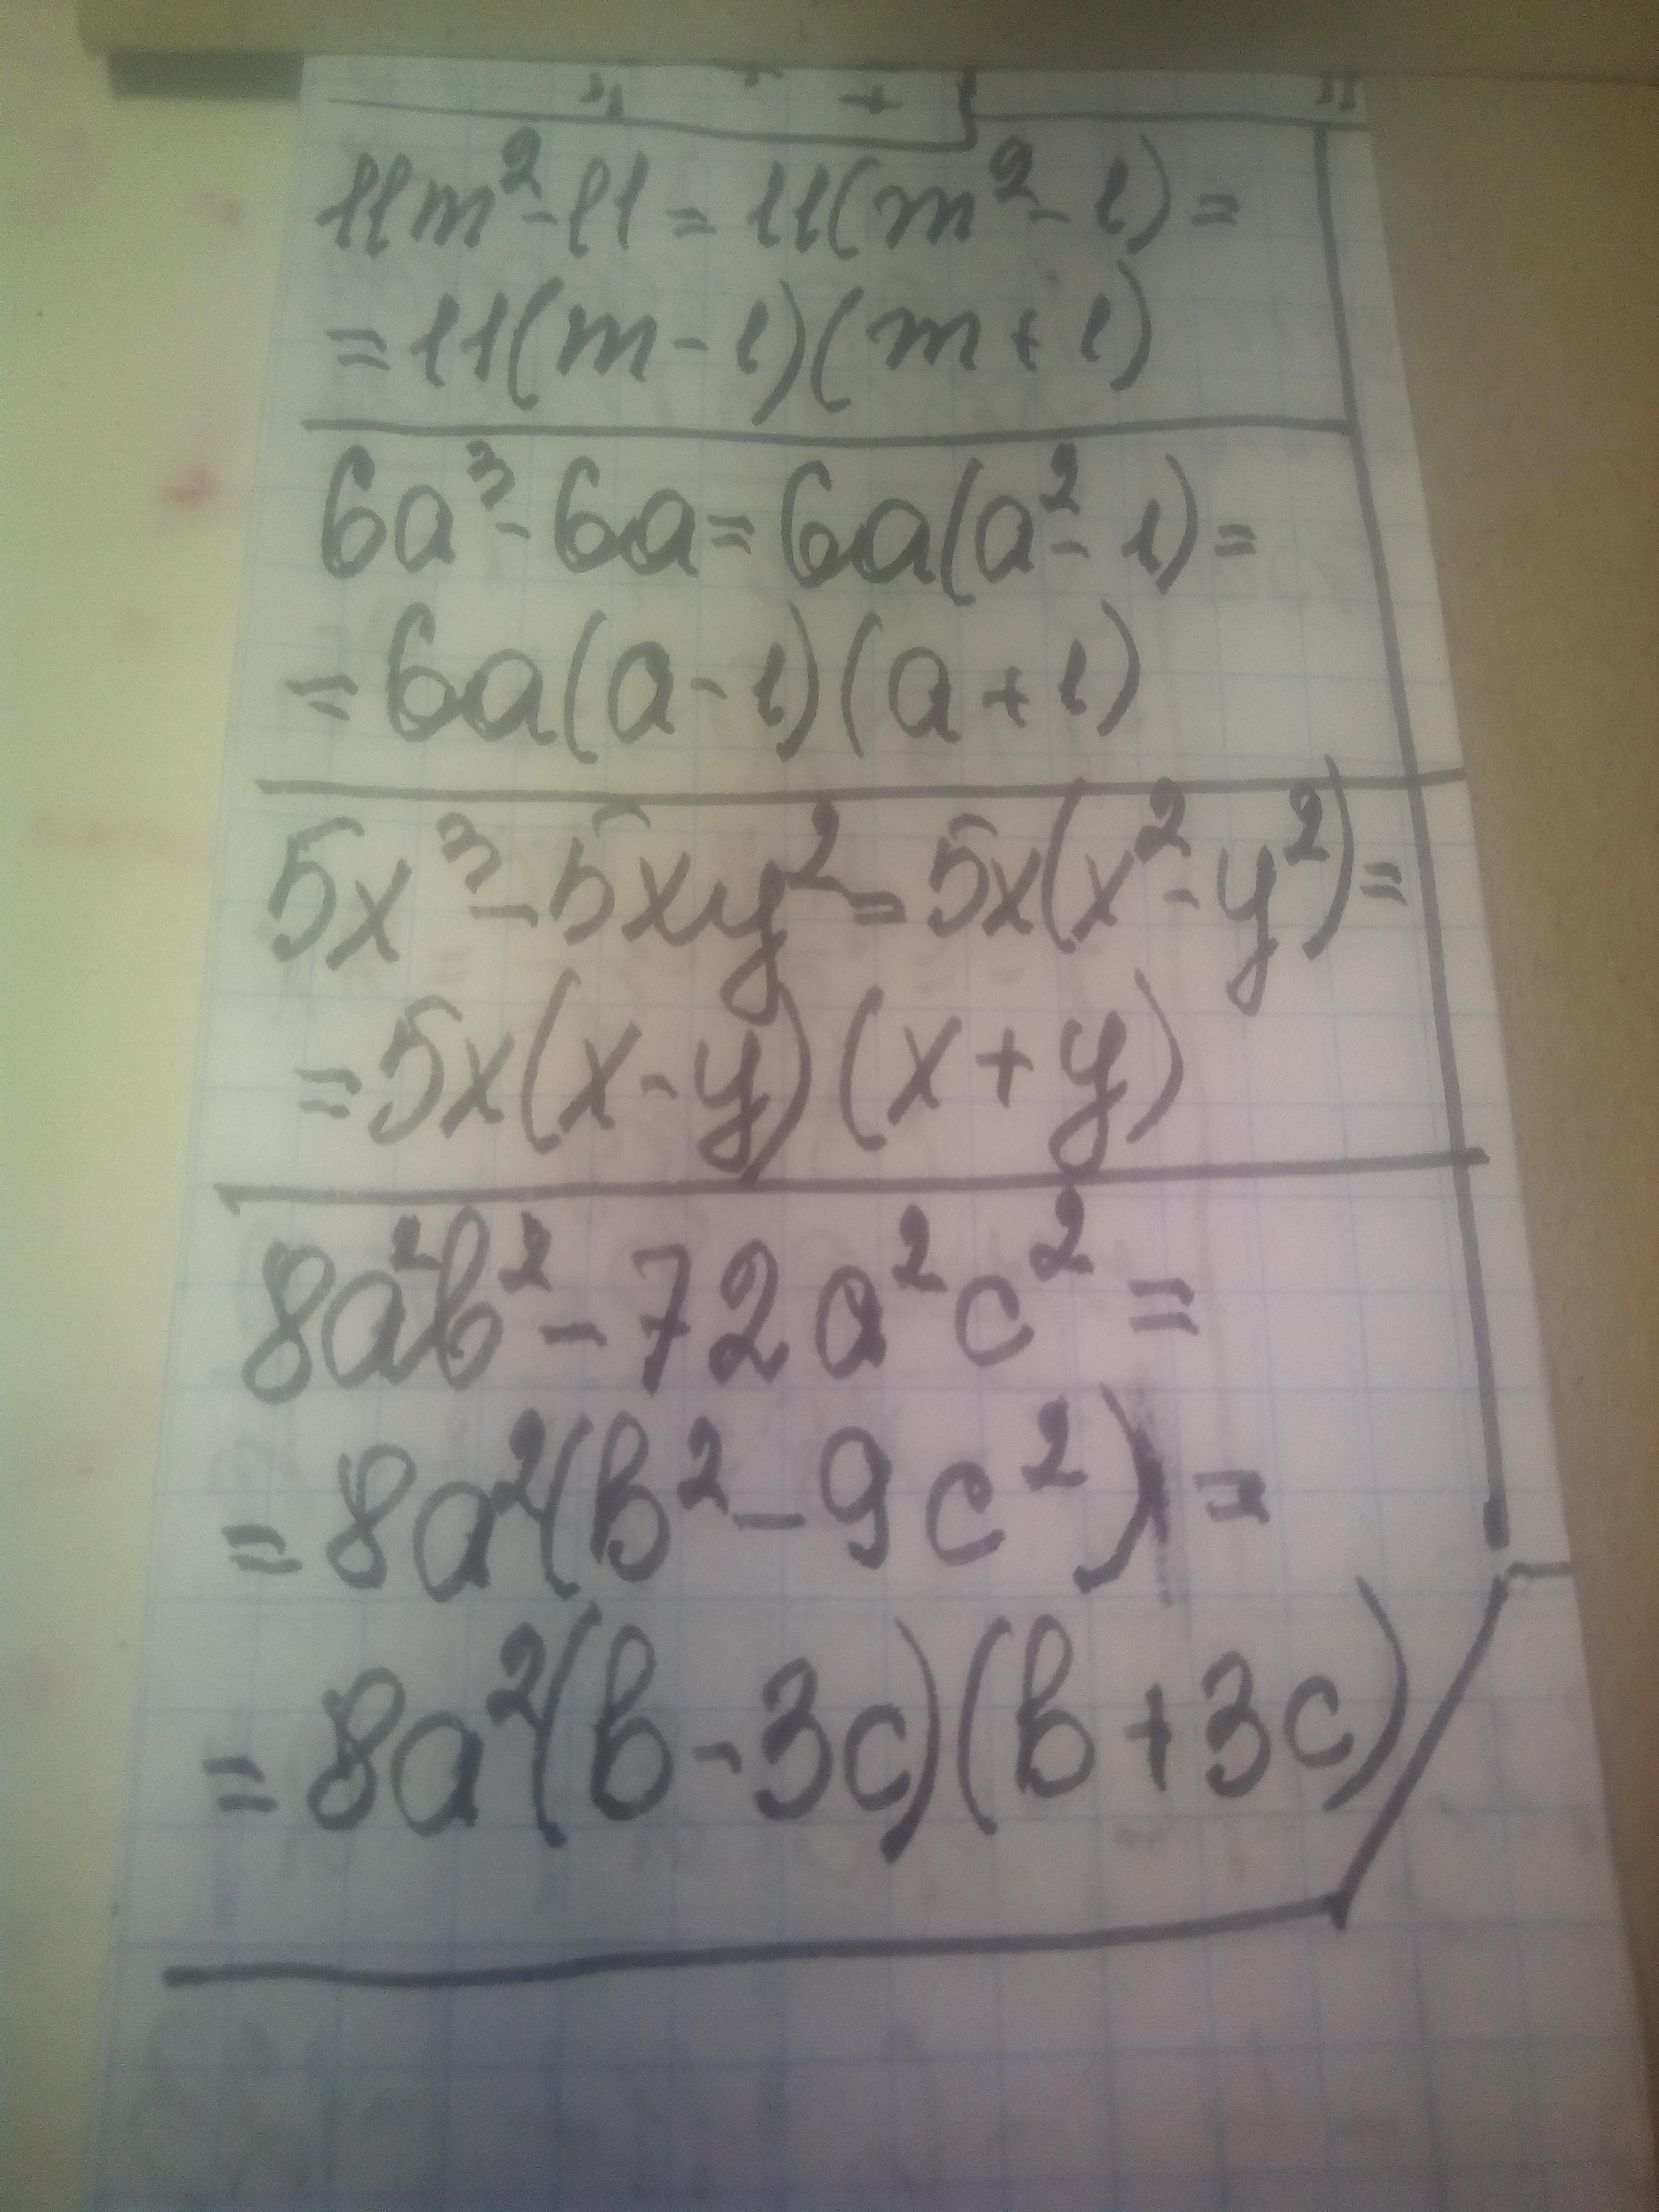 11m² - 11 = 11(m² - 1) =
= 11(m - 1)(m + 1)
6a³ - 6a = 6a(a² - 1) =
= 6a(a - 1)(a + 1)
5x³ - 5xy² = 5x(x² - y²) =
= 5x(x - y)(x + y)
8a²b² - 72a²c² =
= 8a²(b² - 9c²) =
= 8a²(b - 3c)(b + 3c)